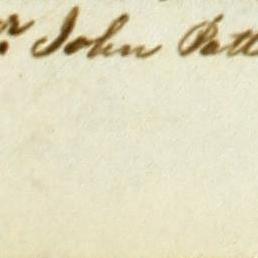 John Patt